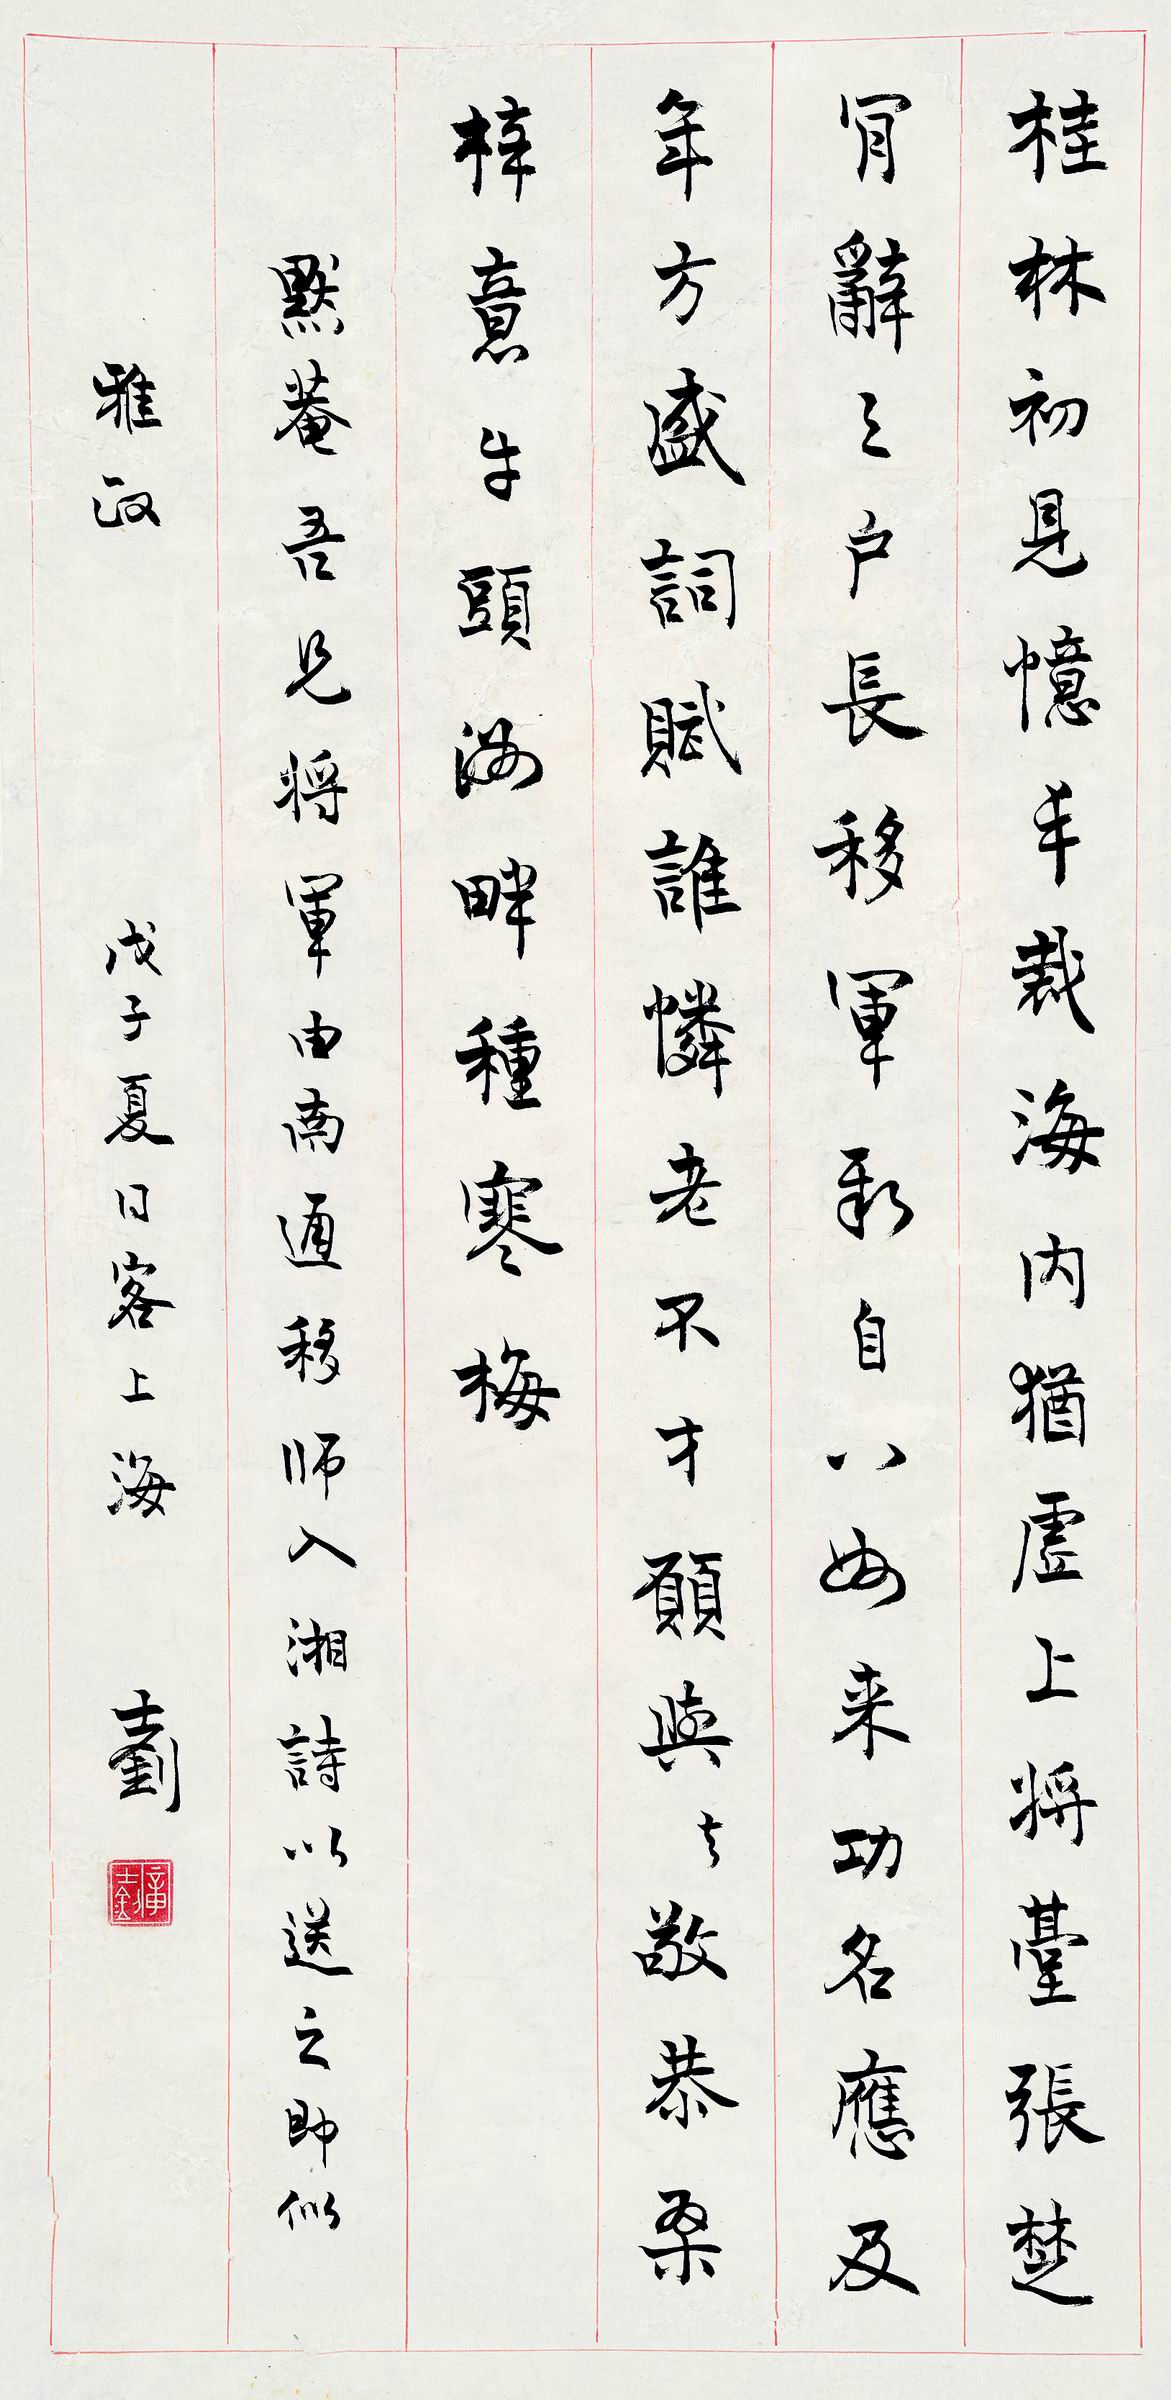 桂林初見憶丰裁海內猶虛上將臺張楚
肎辭三户長移軍自八州来功名應及
年方盛詞賦誰憐老不才願與敬恭桑
梓意牛頭洲畔種寒梅
默菴吾兄将軍由南通移師入湘詩以送之即似
雅政 戊子夏日客上海 士釗
章士釗